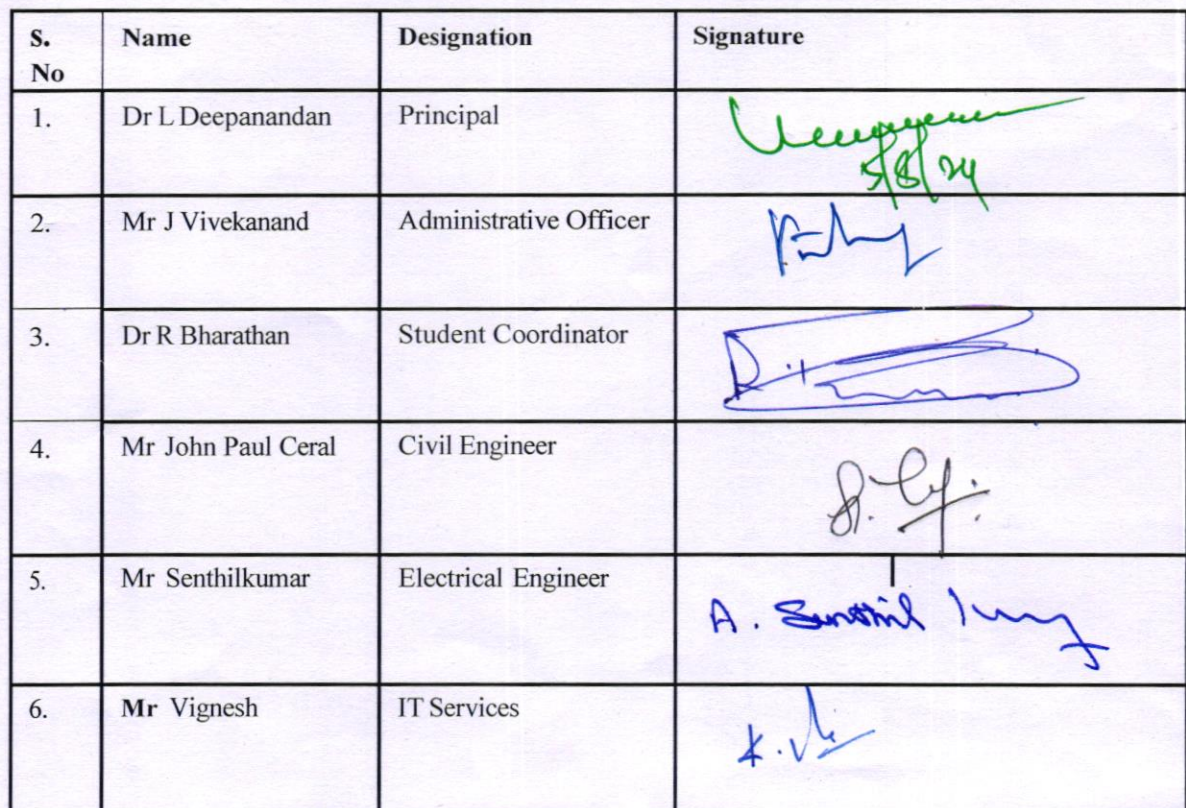 S. No Name Designation Signature
1. Dr L Deepanandan Principal
5/8/24
2. Mr J Vivekanand Administrative Officer
3. Dr R Bharathan Student Coordinator
4. Mr John Paul Ceral Civil Engineer
5. Mr Senthilkumar Electrical Engineer
A. Senthil
6. Mr Vignesh IT Services